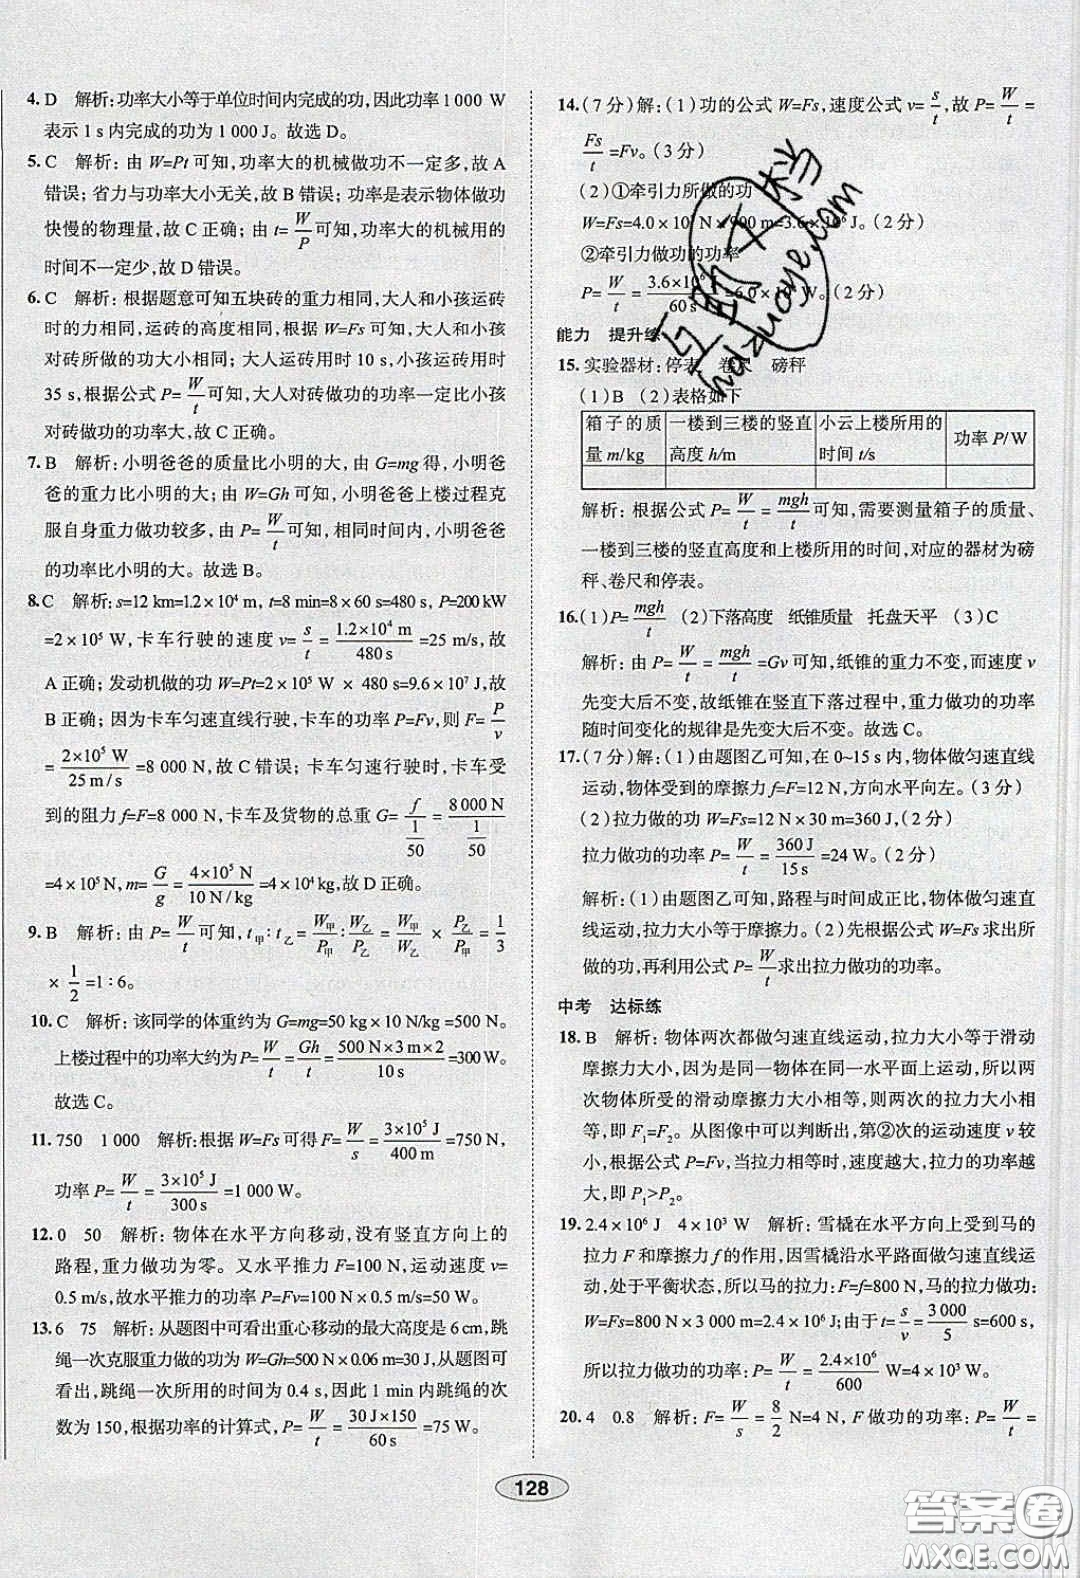 4. D 解析:功率大小等于单位时间内完成的功,因此功率1 000 W
表示1 s内完成的功为1 000 J。故选D。
5. C 解析:由W=Pt可知,功率大的机械做功不一定多,故A
错误;省力与功率大小无关,故B错误;功率是表示物体做功
快慢的物理量,故C正确;由t=W/P可知,功率大的机械用的
时间不一定少,故D错误。
6. C 解析:根据题意可知五块砖的重力相同,大人和小孩运砖
时的力相同,运砖的高度相同,根据W=Fs可知,大人和小孩
对砖所做的功大小相同;大人运砖用时10 s,小孩运砖用时
35 s,根据公式P=W/t可知,大人对砖做功的功率一定比小孩
对砖做功的功率大,故C正确。
7. B 解析:小明爸爸的质量比小明的大,由G=mg得,小明爸
爸的重力比小明的大;由W=Gh可知,小明爸爸上楼过程克
服自身重力做功较多,由P=W/t可知,相同时间内,小明爸爸
的功率比小明的大。故选B。
8. C 解析:s=12 km=1.2×10⁴ m,t=8 min=8×60 s=480 s,P=200 kW
=2×10⁵ W,卡车行驶的速度v=s/t=1.2×10⁴ m/480 s=25 m/s,故
A正确;发动机做的功W=Pt=2×10⁵ W × 480 s=9.6×10⁷ J,故
B正确;因为卡车匀速直线行驶,卡车的功率P=Fv,则F=P/v
=2×10⁵ W/25 m/s=8 000 N,故C错误;卡车匀速行驶时,卡车受
到的阻力f=F=8 000 N,卡车及货物的总重G=f/(1/50)=8 000 N/(1/50)
=4×10⁵ N,m=G/g=4×10⁵ N/10 N/kg=4×10⁴ kg,故D正确。
9. B 解析:由P=W/t可知,t甲:t乙=W甲/P甲:W乙/P乙=W甲/W乙×P乙/P甲=1/3
×1/2=1:6。
10. C 解析:该同学的体重约为G=mg=50 kg×10 N/kg=500 N。
上楼过程中的功率大约为P=W/t=Gh/t=500 N×3 m×2/10 s=300 W。
故选C。
11. 750 1 000 解析:根据W=Fs可得F=W/s=3×10⁵ J/400 m=750 N,
功率P=W/t=3×10⁵ J/300 s=1 000 W。
12. 0 50 解析:物体在水平方向移动,没有竖直方向上的
路程,重力做功为零。又水平推力F=100 N,运动速度v=
0.5 m/s,故水平推力的功率P=Fv=100 N×0.5 m/s=50 W。
13. 6 75 解析:从题图中可看出重心移动的最大高度是6 cm,跳
绳一次克服重力做的功为W=Gh=500 N×0.06 m=30 J,从题图可
看出,跳绳一次所用的时间为0.4 s,因此1 min内跳绳的次
数为150,根据功率的计算式,P=W/t=30 J×150/60 s=75 W。
14. (7分)解:(1)功的公式W=Fs,速度公式v=s/t,故P=W/t=
Fs/t=Fv。(3分)
(2)①牵引力所做的功
W=Fs=4.0×10 N×900 m=3.6×10⁶ J。(2分)
②牵引力做功的功率
P=W/t=3.6×10⁶ J/60 s=6.0×10 W。(2分)
能力 提升练
15. 实验器材:停表 卷尺 磅秤
(1)B (2)表格如下
箱子的质量m/kg 一楼到三楼的竖直高度h/m 小云上楼所用的时间t/s 功率P/W
解析:根据公式P=W/t=mgh/t可知,需要测量箱子的质量、
一楼到三楼的竖直高度和上楼所用的时间,对应的器材为磅
秤、卷尺和停表。
16. (1)P=mgh/t (2)下落高度 纸锥质量 托盘天平 (3)C
解析:由P=W/t=mgh/t=Gv可知,纸锥的重力不变,而速度v
先变大后不变,故纸锥在竖直下落过程中,重力做功的功率
随时间变化的规律是先变大后不变。故选C。
17. (7分)解:(1)由题图乙可知,在0~15 s内,物体做匀速直线
运动,物体受到的摩擦力f=F=12 N,方向水平向左。(3分)
(2)拉力做的功W=Fs=12 N×30 m=360 J,(2分)
拉力做功的功率P=W/t=360 J/15 s=24 W。(2分)
解析:(1)由题图乙可知,路程与时间成正比,物体做匀速直
线运动,拉力大小等于摩擦力。(2)先根据公式W=Fs求出所
做的功,再利用公式P=W/t求出拉力做功的功率。
中考 达标练
18. B 解析:物体两次都做匀速直线运动,拉力大小等于滑动
摩擦力大小,因为是同一物体在同一水平面上运动,所以两
次物体所受的滑动摩擦力大小相等,则两次的拉力大小相
等,即F₁=F₂。从图像中可以判断出,第②次的运动速度v较
小,根据公式P=Fv,当拉力相等时,速度越大,拉力的功率越
大,即P₁>P₂。
19. 2.4×10⁶ J 4×10³ W 解析:雪橇在水平方向上受到马的
拉力F和摩擦力f的作用,因雪橇沿水平路面做匀速直线运
动,处于平衡状态,所以马的拉力:F=f=800 N,马的拉力做功:
W=Fs=800 N×3 000 m=2.4×10⁶ J;由于t=s/v=3 000/5 s=600 s,
所以拉力做功的功率:P=W/t=2.4×10⁶/600 W=4×10³ W。
20. 4 0.8 解析:F=W/s=8/2 N=4 N,F做功的功率:P=W/t=
128
答案圈
MXQE.COM